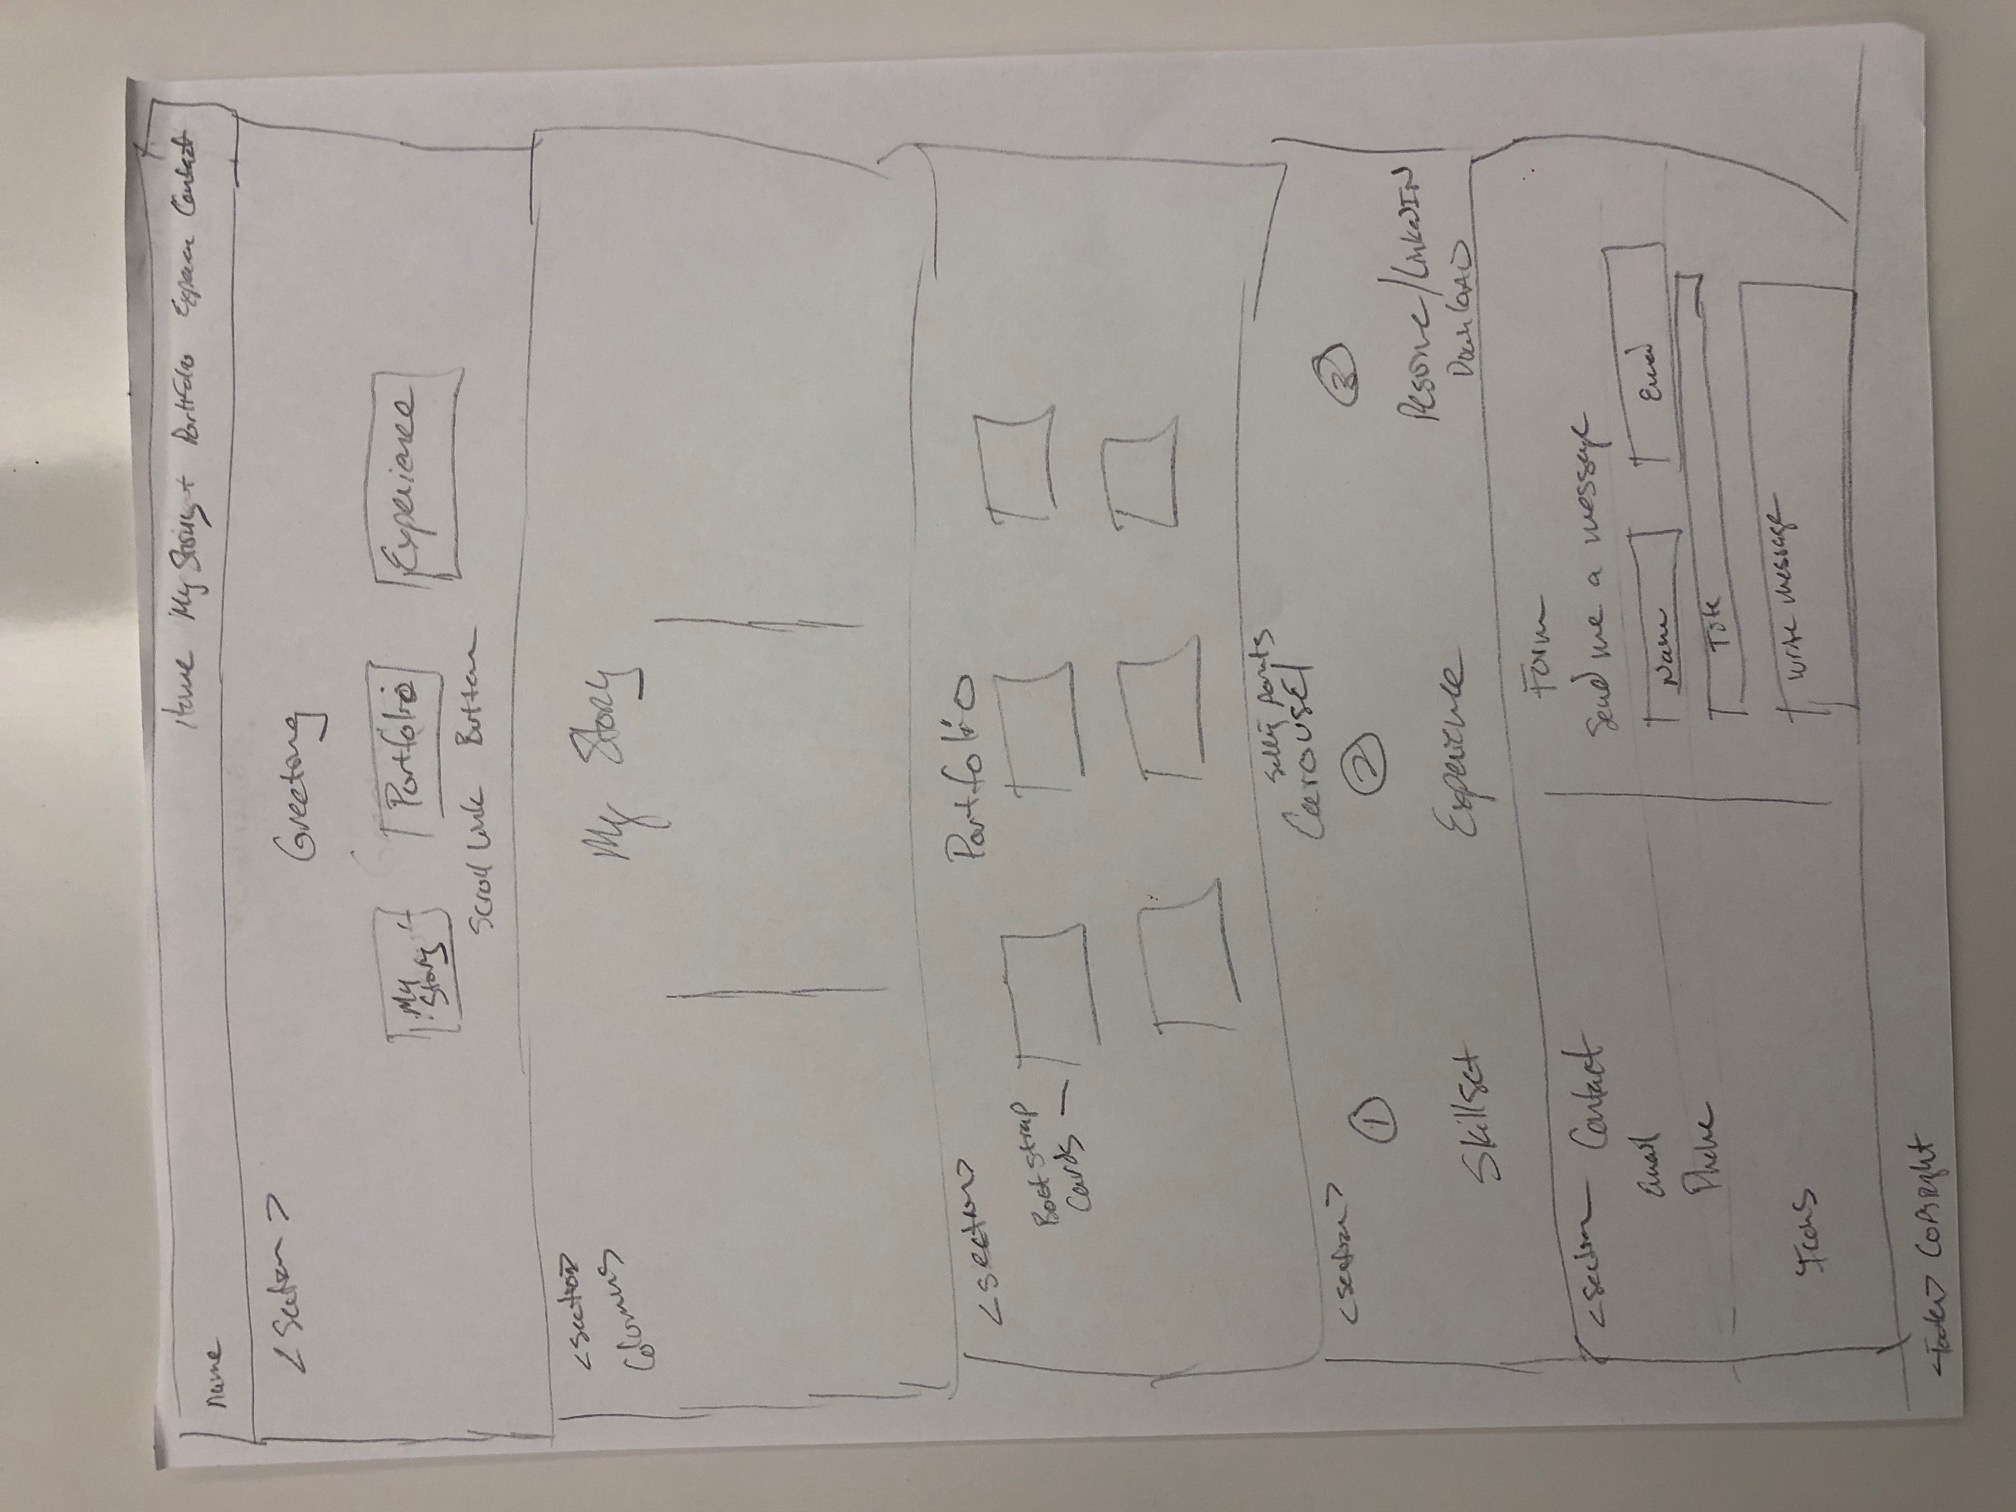 name
Home My Story Portfolio Contact
<Section>
Greeting
My Story Portfolio Experience
Scroll Link Button
<section>
Columns
My Story
<section>
Portfolio
Bootstrap
Cards
Selling points
Carousel
<section>
1 2 3
Skillset Experience Resume/LinkedIN
Download
<section Contact
Email
Phone
Icons
Form
Send me a message
Name Email
Title
write message
<Footer> Copyright